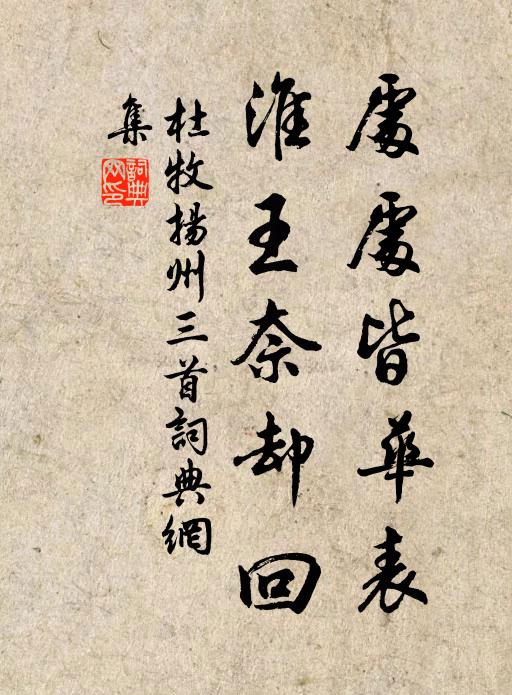 處處皆華表
淮王奈却回
杜牧揚州三首詞典網
集
詞典網印